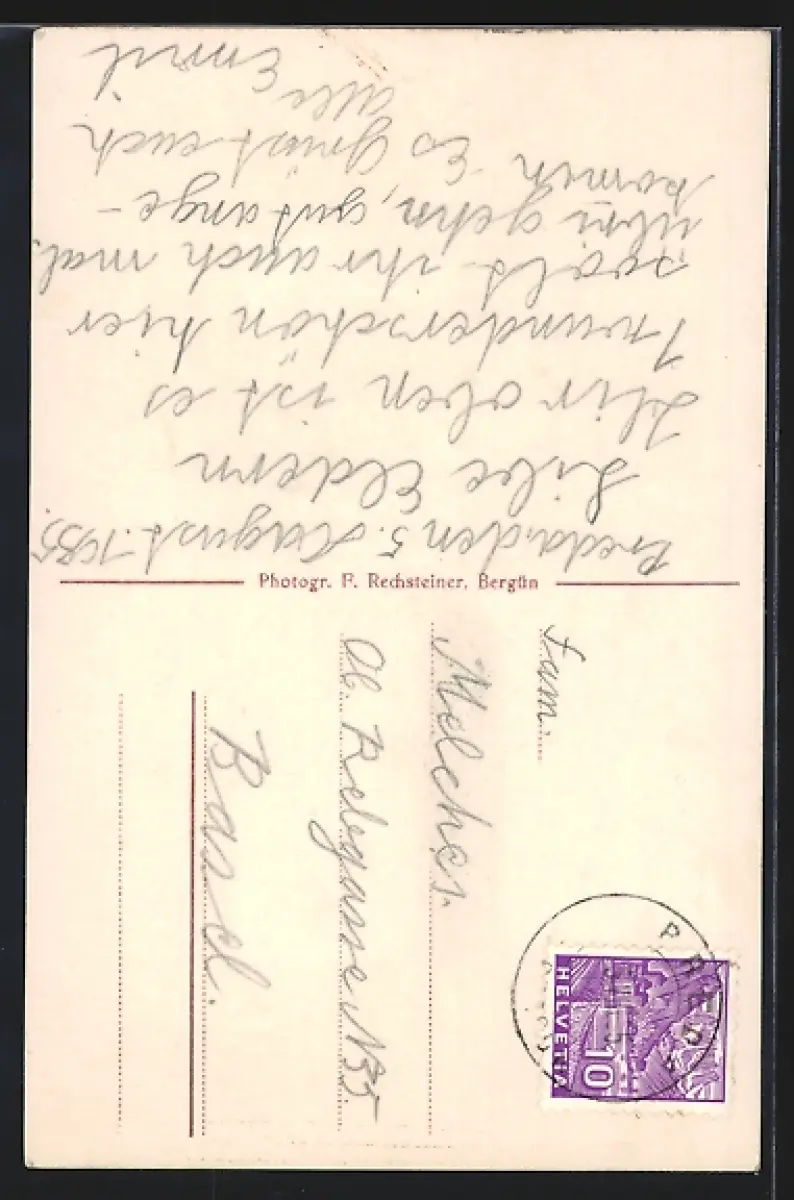 Preda, den 5. August. 1935.
Libe Eldern
Hir oben ist es
wunderschön hier
sold ihr auch mal.
übri gehn, gut ange-
komen. Es grüst euch
alle Emil
Photogr. F. Rechsteiner, Bergün
Fam.
Melcher.
Ob. Rebgasse N
Basel.
HELVETIA
10
PREDA